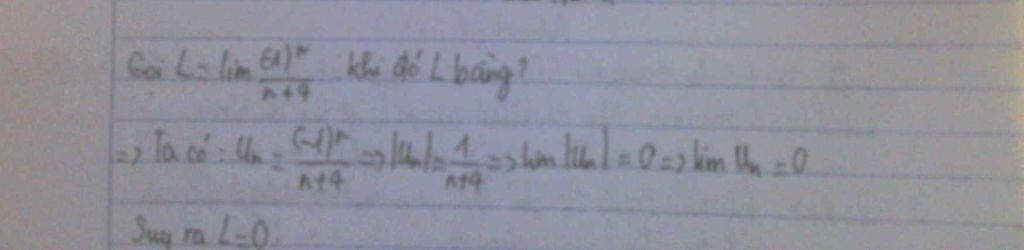 Gọi L = lim (-1)^n / (n+4). khi đó L bằng?
=> Ta có: Un = (-1)^n / (n+4) => |Un| = 1 / (n+4) => lim |Un| = 0 => lim Un = 0
Suy ra L = 0